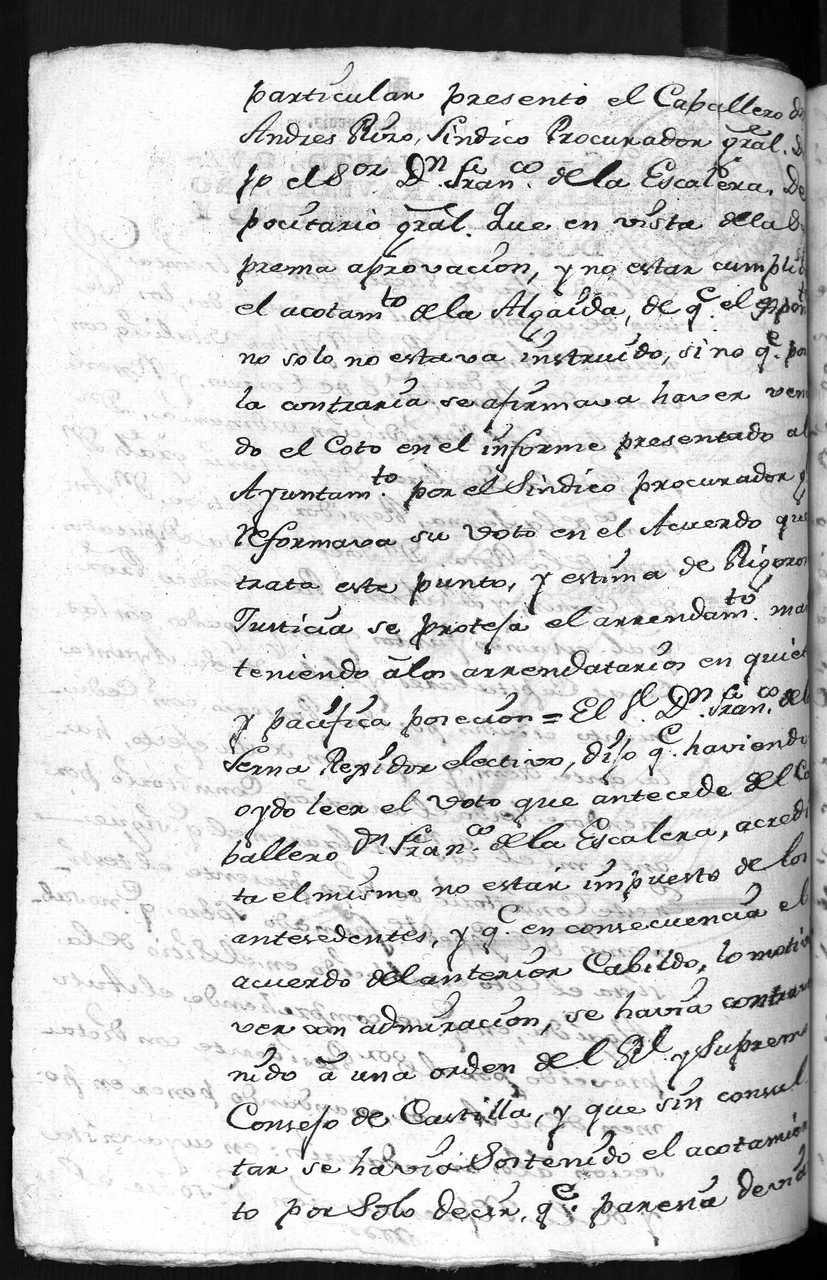 particular presentó el Caballero dn
Andres Riro, Sindico Procurador gral. D
jo el Sor. Dn. Franco. de la Escalera, De
pocitario gral. que en vista de la Su
prema aprovacion, y no estar cumplido
el acotamto. de la Algaida, de qe. el expte.
no solo no estava instruido, si no qe. por
la contraria se afirmava haver venci
do el Coto en el informe presentado al
Ayuntamto. por el Sindico procurador y
Reformava su voto en el Acuerdo que
trata este punto, y estima de Rigoro
Justicia se proteja el arrendamto. man
teniendo á los arrendatarios en quiet
y pacifica poсecion = El Sr. Dn. Franco. de la
Serna Rexidor electivo, dijo qe. haviendo
oydo leer el voto que antecede del Ca
ballero Dn Franco. de la Escalera, acredi
ta el mismo no estar impuesto de los
antesedentes, y qe. en consecuencia el
acuerdo del anterior Cabildo, lo motiv
ver con admiracion, se havia contrave
nido á una orden del Rl. y Supremo
Consejo de Castilla, y que sin consul
tar se havia Sostenido el acotamien
to por Solo decir, qe. paresia devia